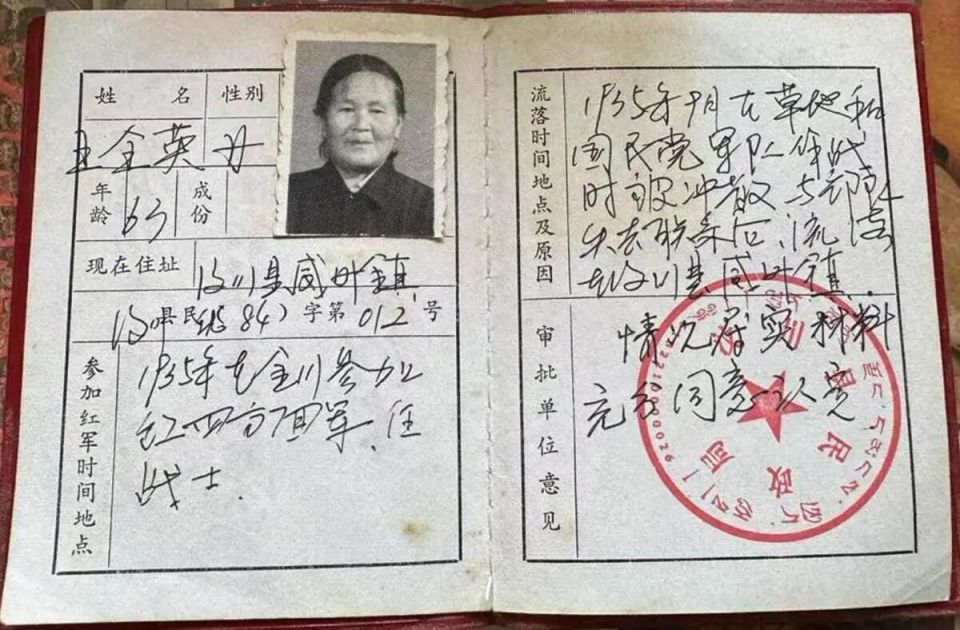 姓名 性别
王全英 女
年龄 63 成份
现在住址
汶川县威州镇
汶川县民(84)字第012号
参加红军时间地点
1935年在金川参加
红四方面军、任
战士.
流落时间地点及原因
1935年9月在草地和
国民党军队作战
时被冲散与部队
失去联系后、流落
在汶川县威州镇.
审批单位意见
情况属实材料
充分同意认定
汶川县民政局